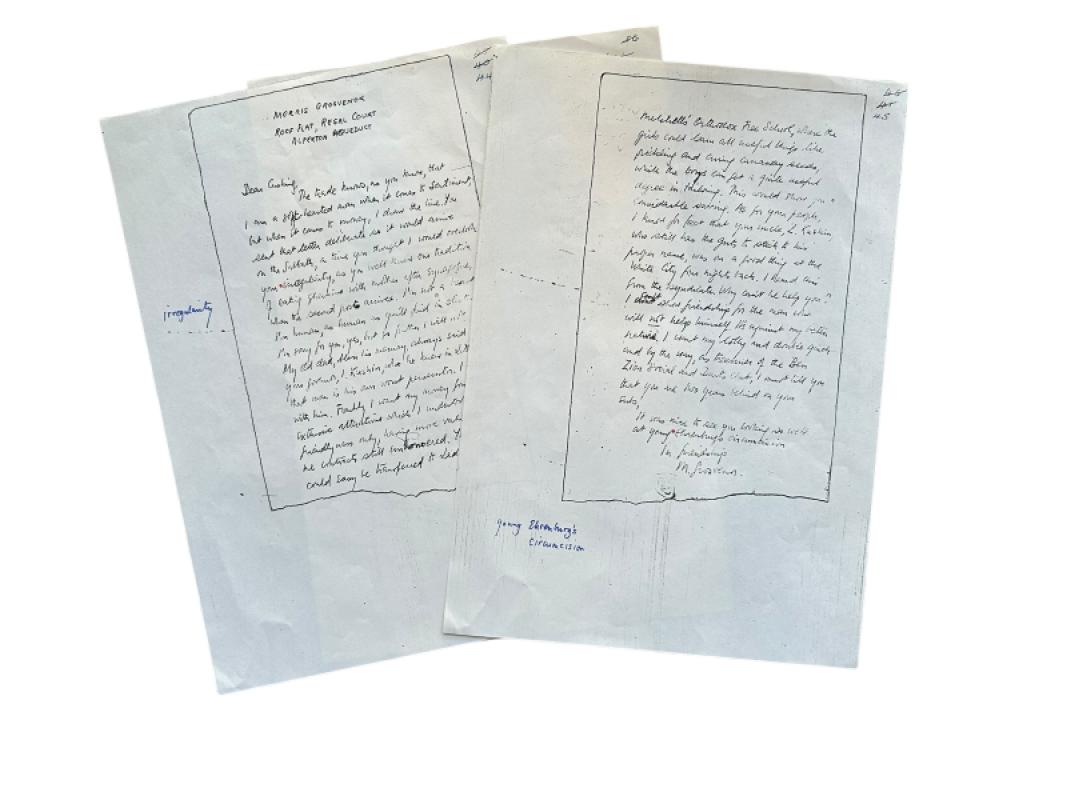 MORRIS GROSVENOR
ROOF FLAT, REGAL COURT
ALPERTON
Dear Cushing,
The trade knows, as you know, that
I am a soft-hearted man when it comes to sentiment,
but when it comes to money, I draw the line. You
sent that letter deliberate so it would arrive
on the Sabbath, a time you thought I would overlook
your irregularity, as you well know our tradition
of eating with mother after
when the second post arrives. I'm not a
I'm human, as human as
I'm sorry for you, yes, but no further I will
My old dad, bless his memory, always said
your, L. Kushin, who he knew in
that man is his own worst persecutor. I
with him. Frankly I want my money for
extensive alterations which I undertook
friendlyness only, having more
contracts still unhonoured.
could easy be transferred to
irregularity
86
44
Orthodox Free School, where the
girls could learn all useful things like
pickling and curing seeds,
while the boys can get a quite useful
degree in tailoring. This would show you
considerable saving. As for your people,
I know for fact that your uncle, L. Kushin,
who still has the guts to stick to his
proper name, was on a good thing at the
White City five nights back. I heard
from the. Why can't he help you?
I can't show friendship for the man who
will not help himself. It's against my better
nature. I want my lolly and double quick
and by the way, as treasurer of the Ben
Zion Social and Club, I must tell you
that you are two years behind on your
subs.
It was nice to see you looking so well
at young Ehrenburg's circumcision
In friendship
M. Grosvenor.
45
young Ehrenburg's
circumcision